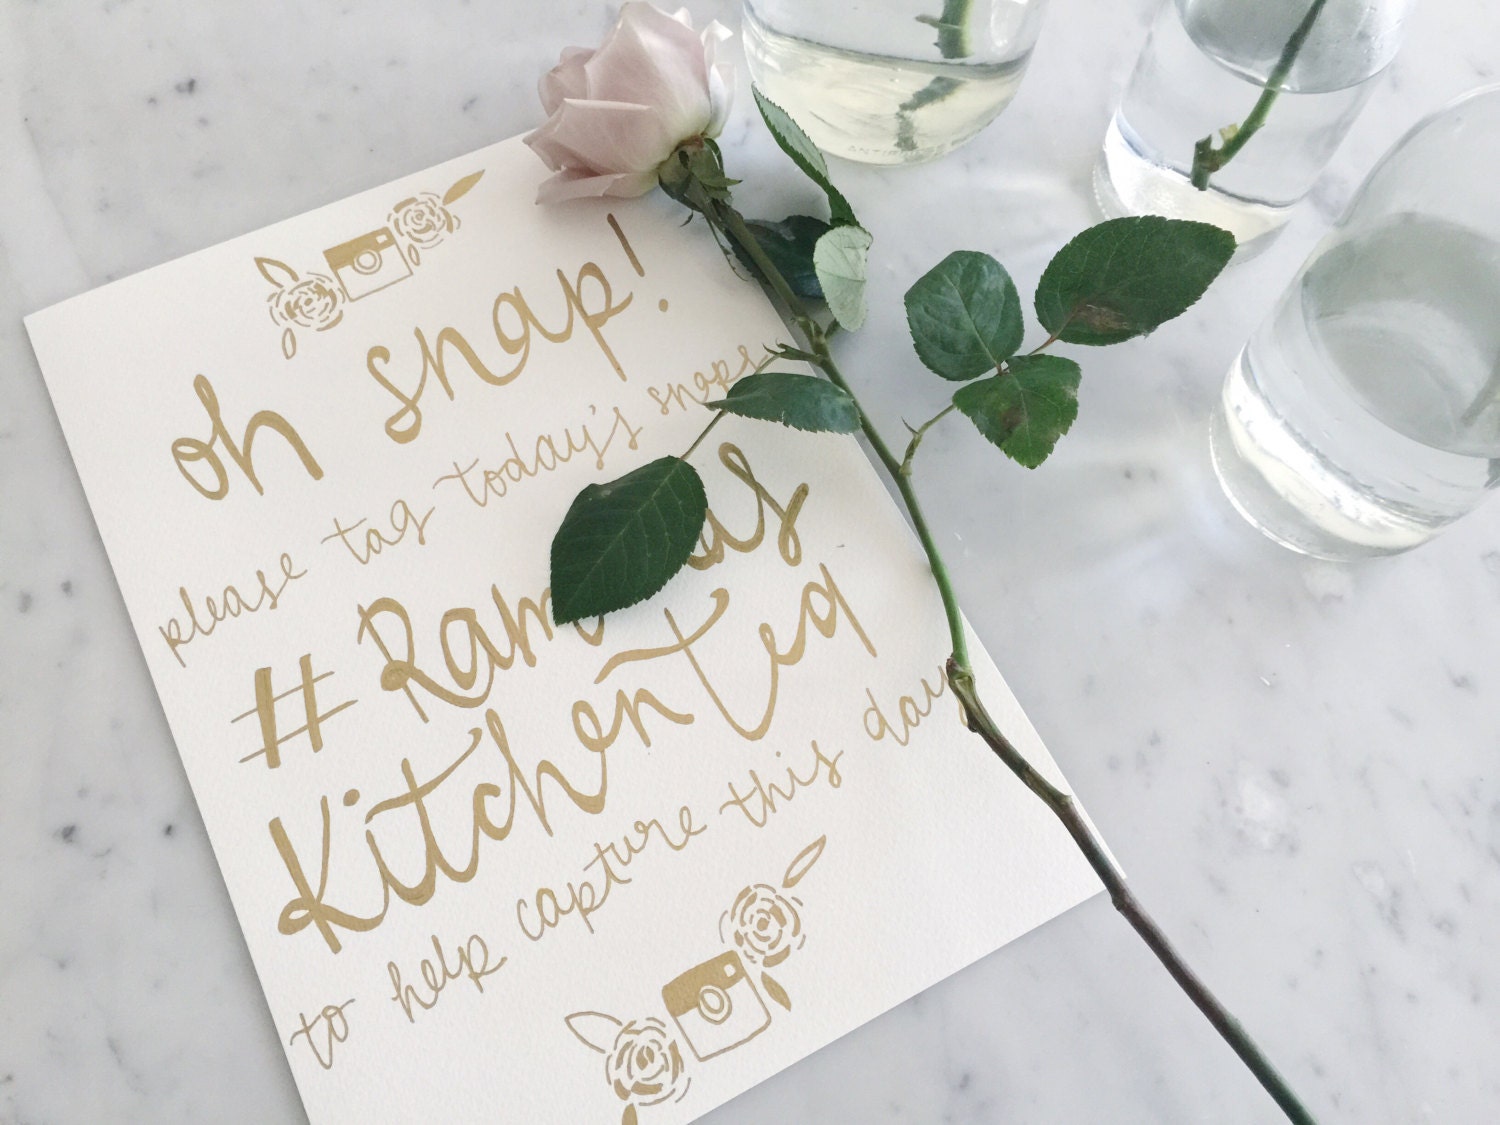 oh snap!
please tag today's snaps
Kitchen Tea
to help capture this day
ANTI